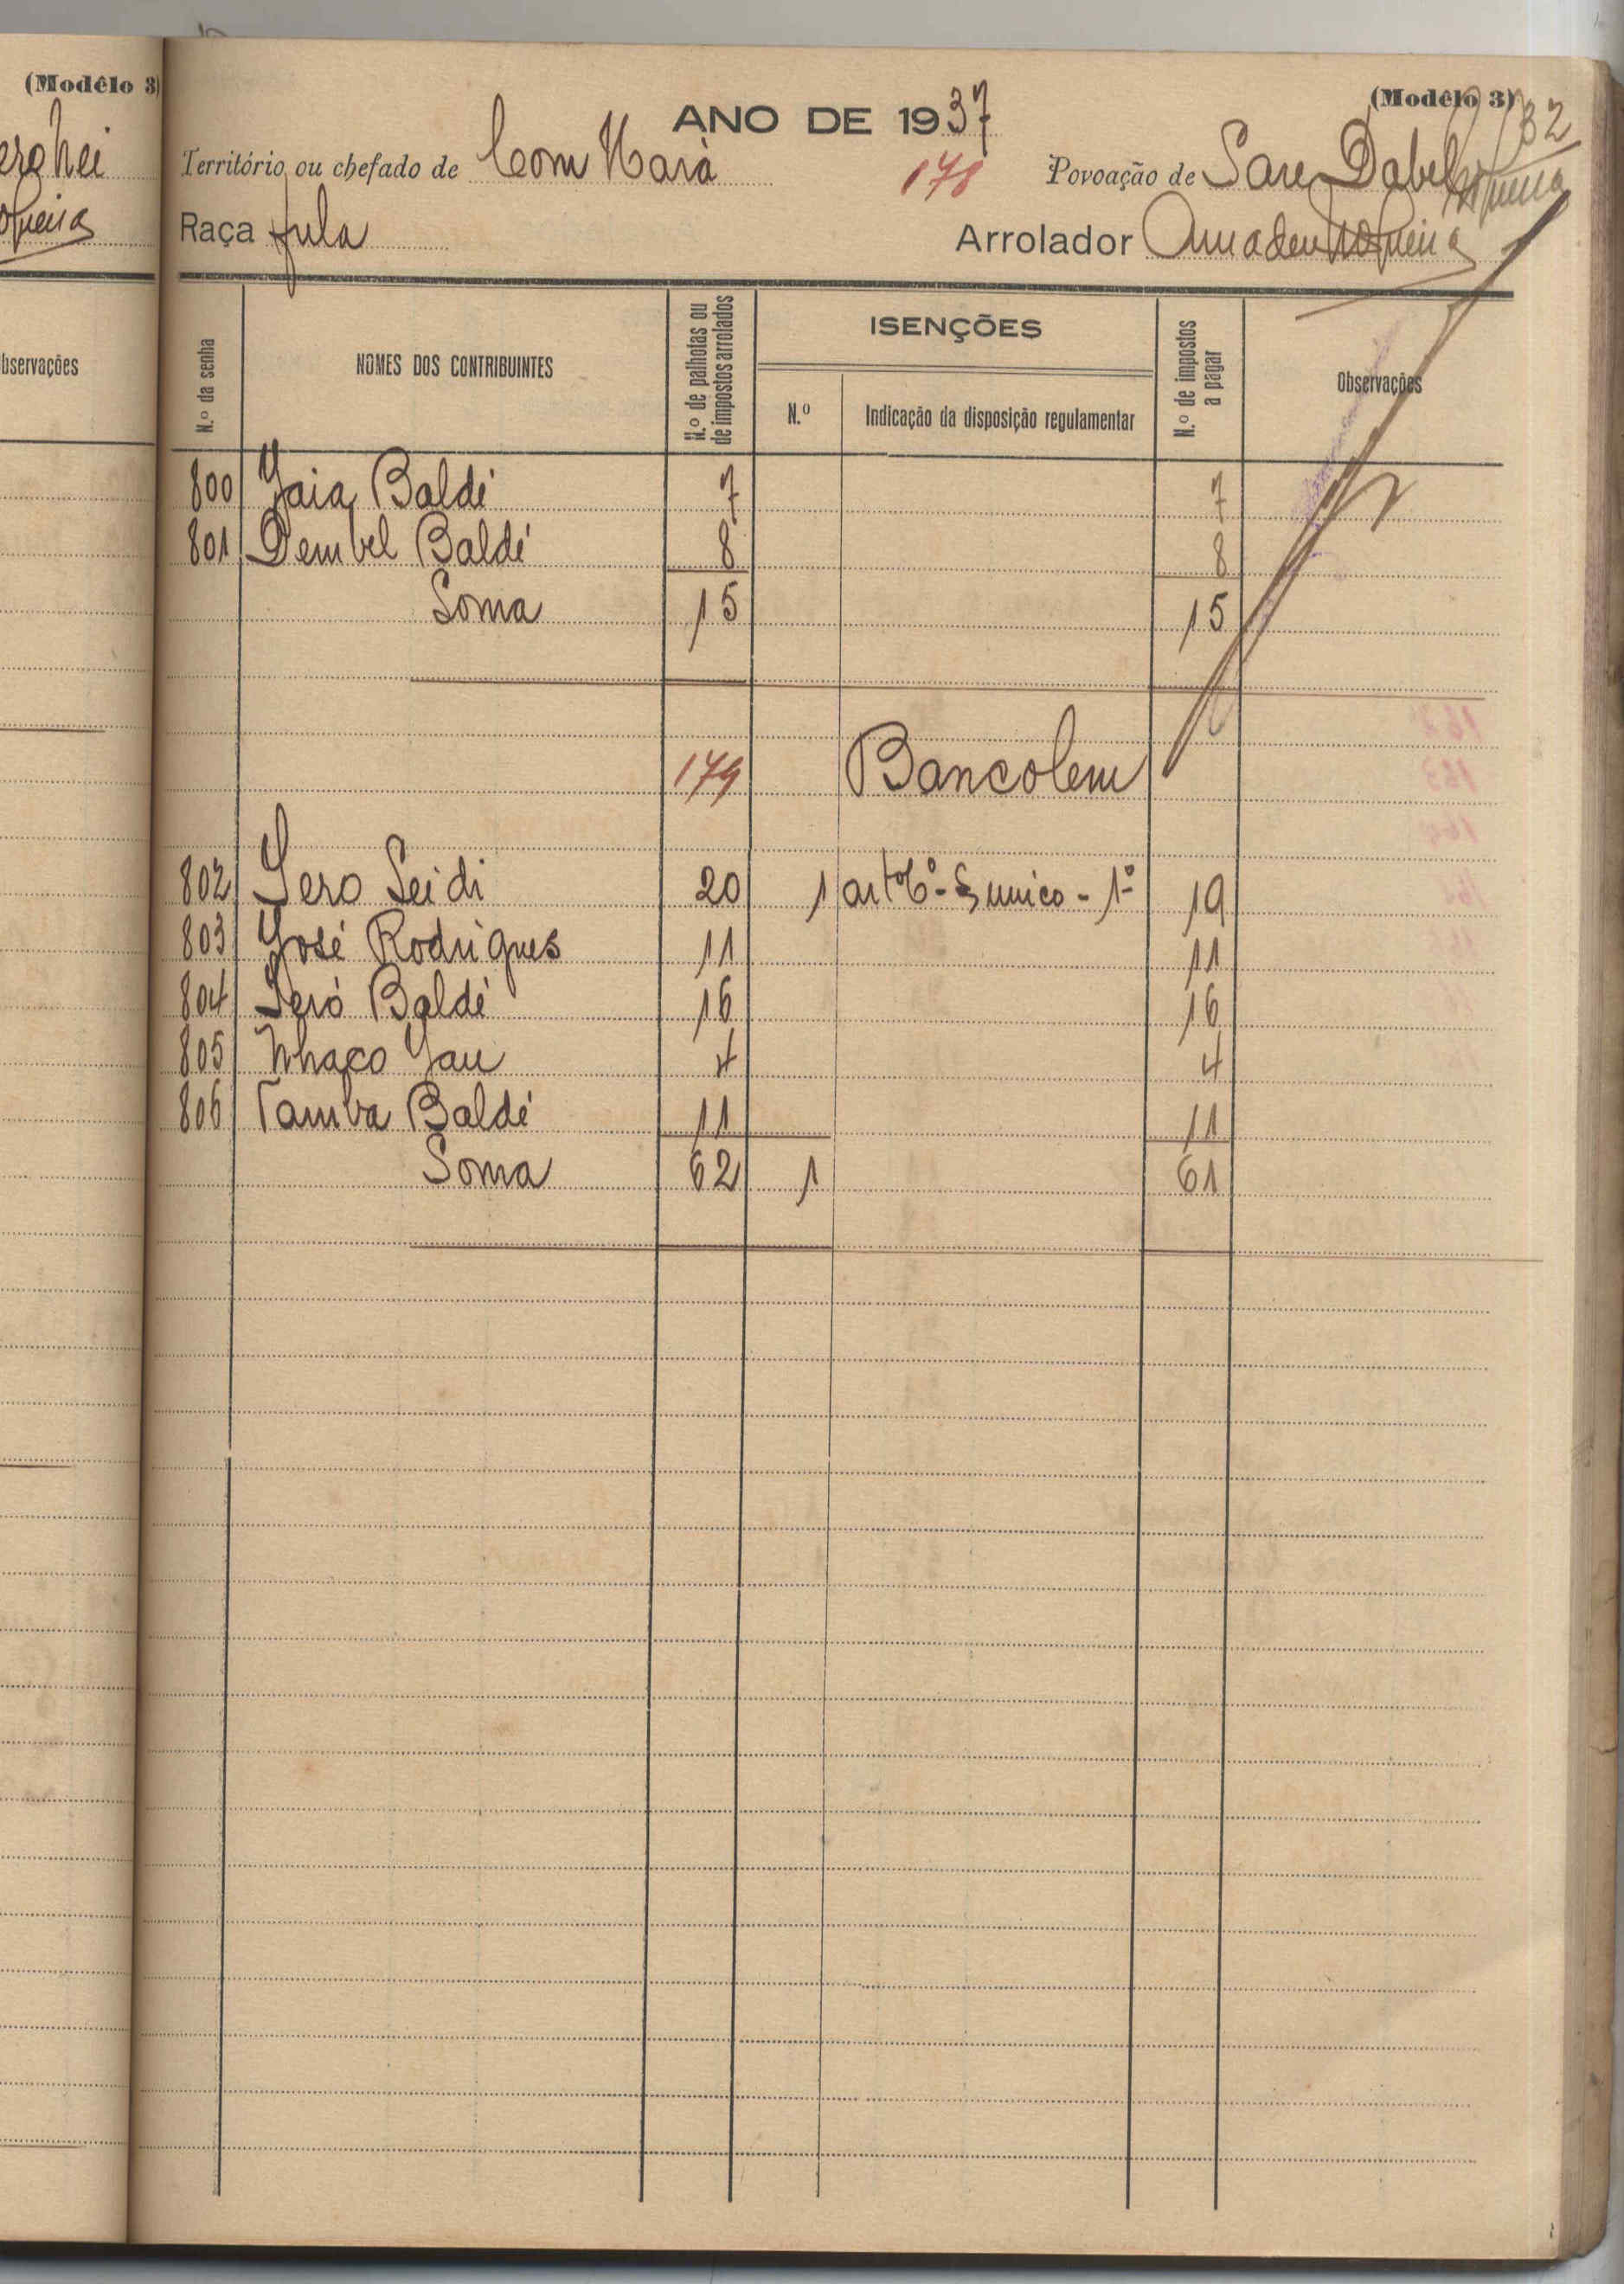 (Modêlo 3)
bservações
(Modêlo 3)
132
ANO DE 1937
Território ou chefado de
178
Povoação de Sare Dabel
Raça fula
Arrolador Amadeu Nogueira
N.º da senha
NOMES DOS CONTRIBUINTES
N.º de palhotas ou de impostos arrolados
ISENÇÕES
N.º
Indicação da disposição regulamentar
N.º de impostos a pagar
Observações
800 Yaia Baldé 7 7
801 Dembel Baldé 8 8
Soma 15 15
179 Bancolem
802 Sero Seidi 20 1 artº 6º - § unico - 1º 19
803 José Rodrigues 11 11
804 Seró Baldé 16 16
805 Nhaco Jau 4 4
806 Tamba Baldé 11 11
Soma 62 1 61